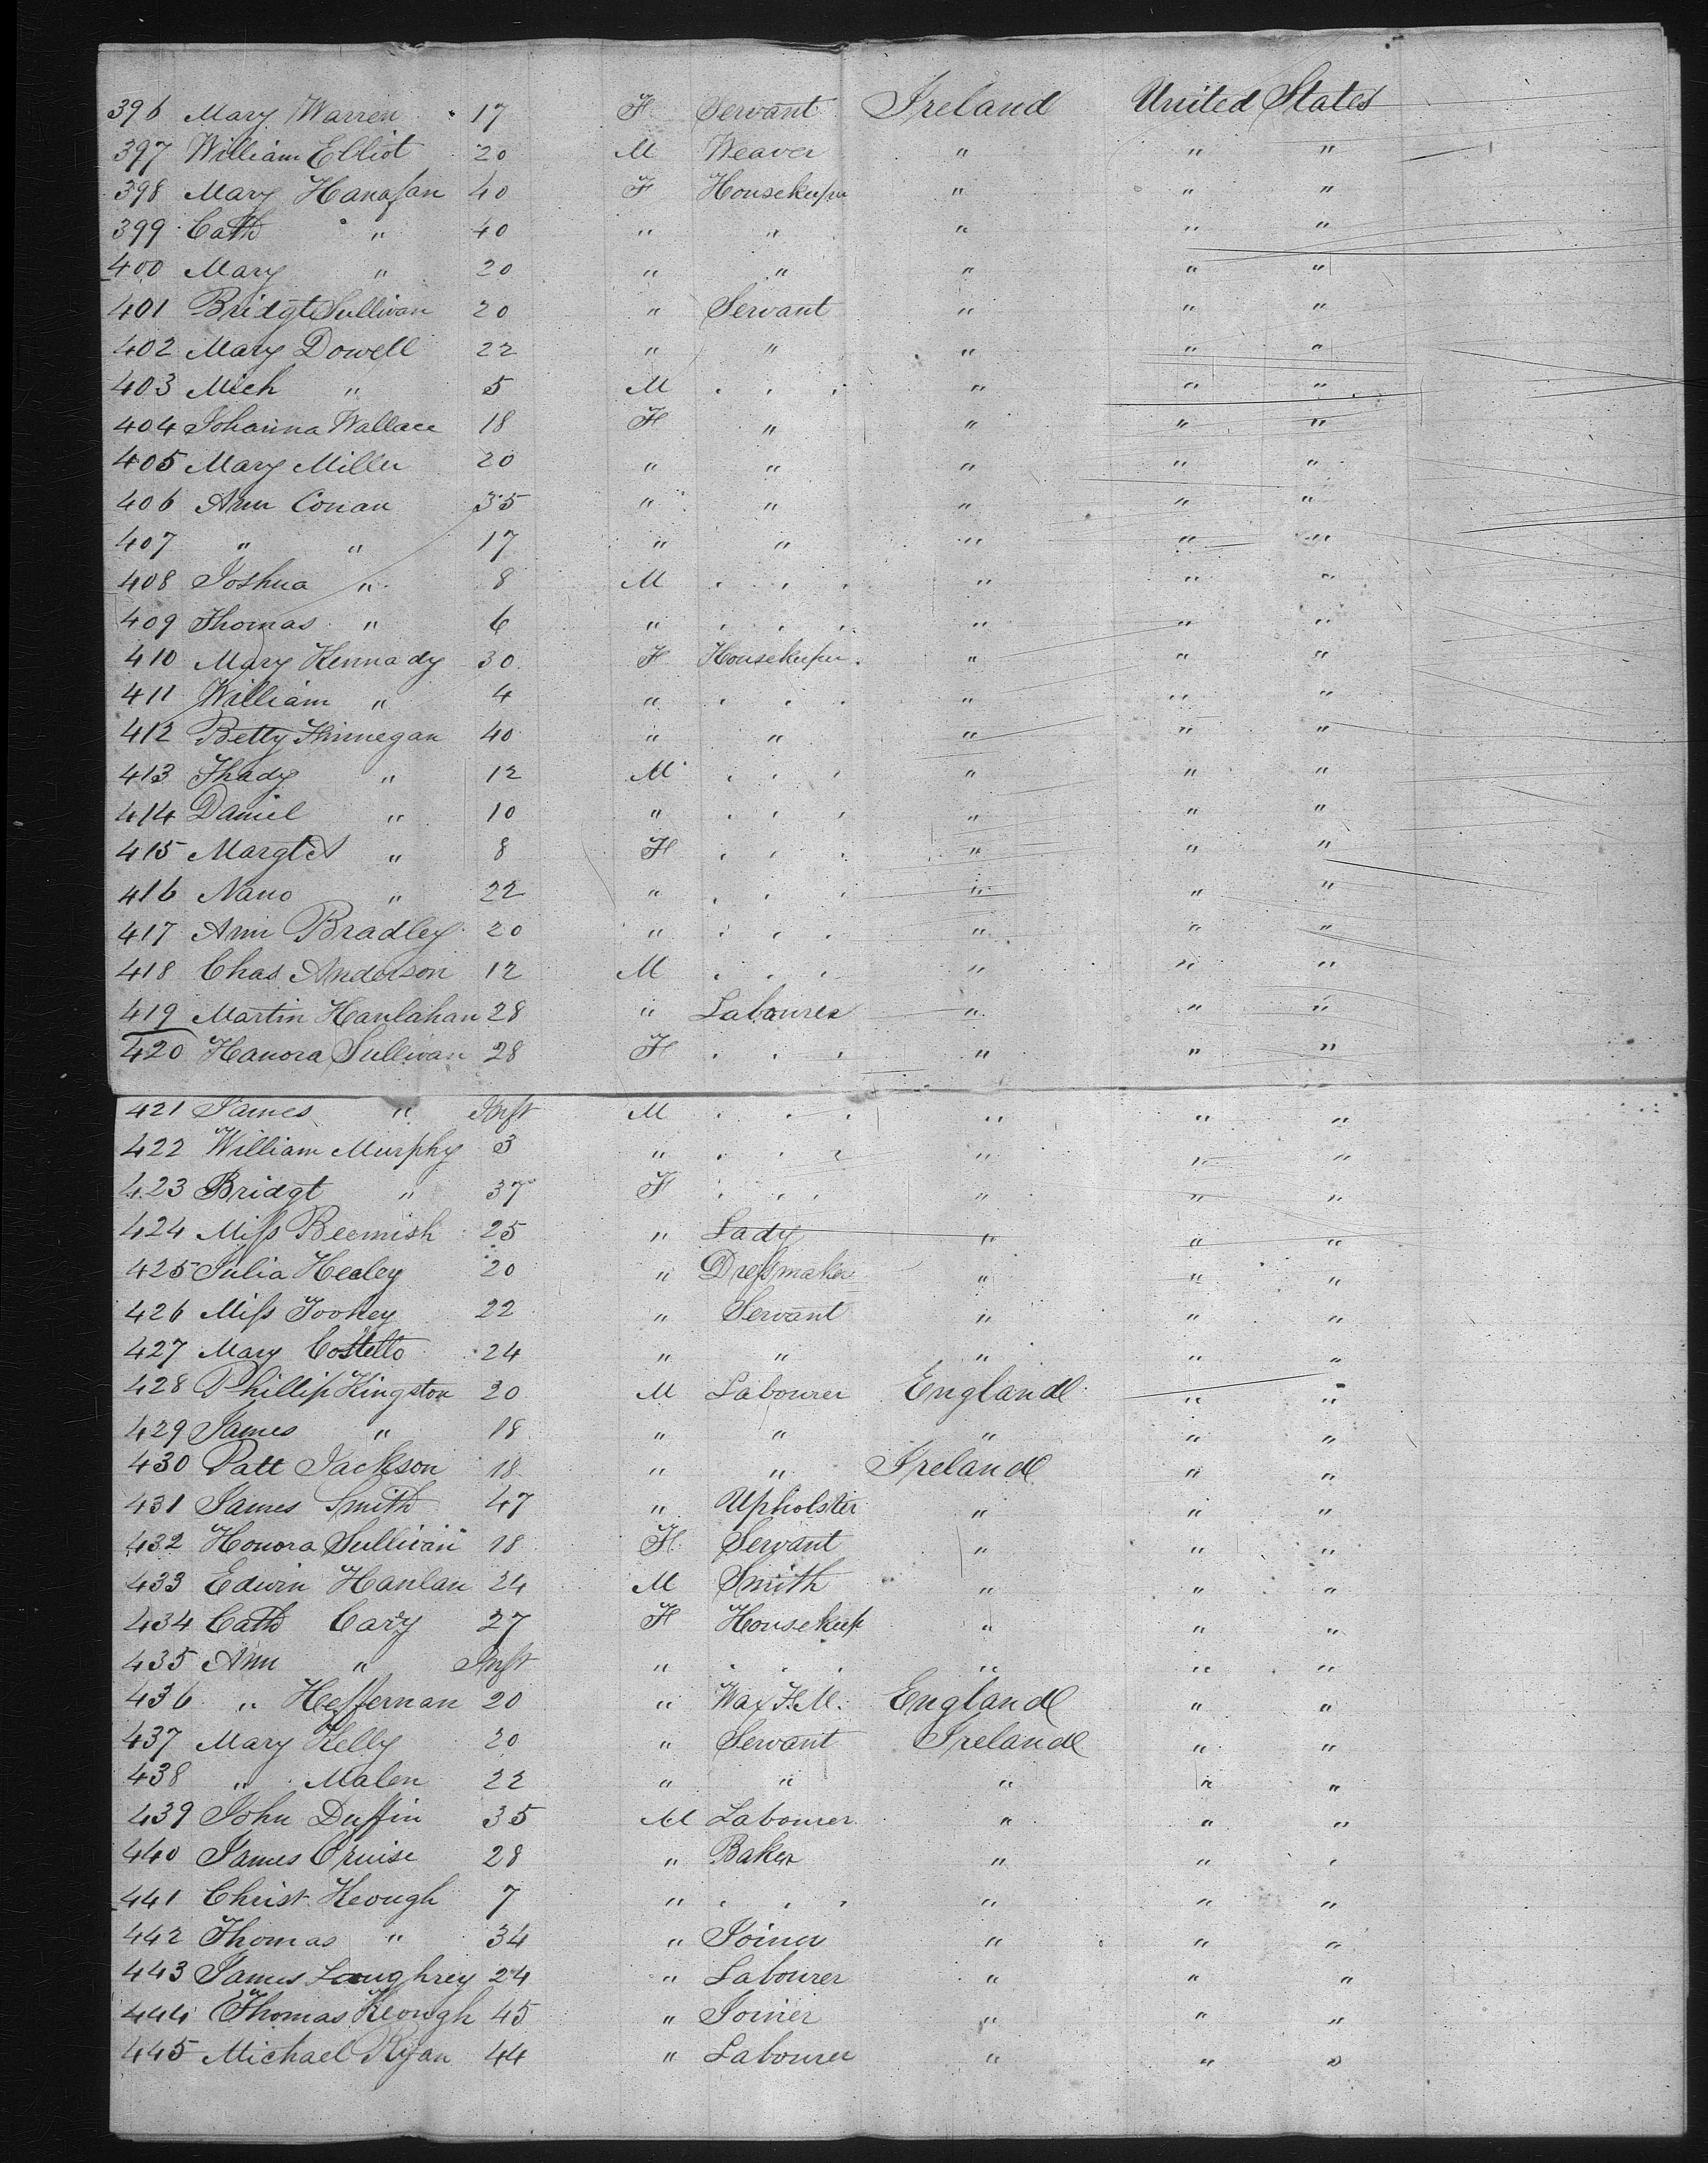 396 Mary Warren 17 F Servant Ireland United States
397 William Elliot 20 M Weaver " " "
398 Mary Hanafan 40 F Housekeeper " " "
399 Cath " 40 " " " " "
400 Mary " 20 " " " " "
401 Bridgt Sullivan 20 " Servant " " "
402 Mary Dowell 22 " " " " "
403 Mich " 5 M . . . " " "
404 Johanna Wallace 18 F " " " "
405 Mary Miller 20 " " " " "
406 Ann Conan 35 " " " " "
407 " " 17 " " " " "
408 Joshua " 8 M . . . " " "
409 Thomas " 6 " . . . " " "
410 Mary Kennady 30 F Housekeeper " " "
411 William " 4 " . . . " " "
412 Betty Finnegan 40 " " " " "
413 Thady " 12 M . . . " " "
414 Daniel " 10 " . . . " " "
415 Margt " 8 F . . . " " "
416 Nano " 22 " . . . " " "
417 Ann Bradley 20 " . . . " " "
418 Chas Anderson 12 M . . . " " "
419 Martin Hanlahan 28 " Labourer " " "
420 Hanora Sullivan 28 F . . . " " "
421 James " Inft M . . . " " "
422 William Murphy 3 " . . . " " "
423 Bridgt " 37 F . . . " " "
424 Miss Beemish 25 " Lady " " "
425 Julia Healey 20 " Dressmaker " " "
426 Miss Toohey 22 " Servant " " "
427 Mary Costello 24 " " " " "
428 Phillip Kingston 20 M Labourer England " "
429 James " 18 " " " " "
430 Patt Jackson 18 " " Ireland " "
431 James Smith 47 " Upholster " " "
432 Honora Sullivan 18 F Servant " " "
433 Edwin Hanlan 24 M Smith " " "
434 Cath Cary 27 F Housekeep " " "
435 Ann " Inft " . . . " " "
436 " Heffernan 20 " Wax F. M. England " "
437 Mary Kelly 20 " Servant Ireland " "
438 " Malen 22 " " " " "
439 John Duffin 35 M Labourer " " "
440 James Cruise 28 " Baker " " "
441 Christ Keough 7 " . . . " " "
442 Thomas " 34 " Joiner " " "
443 James Loughrey 24 " Labourer " " "
444 Thomas Keough 45 " Joiner " " "
445 Michael Ryan 44 " Labourer " " "